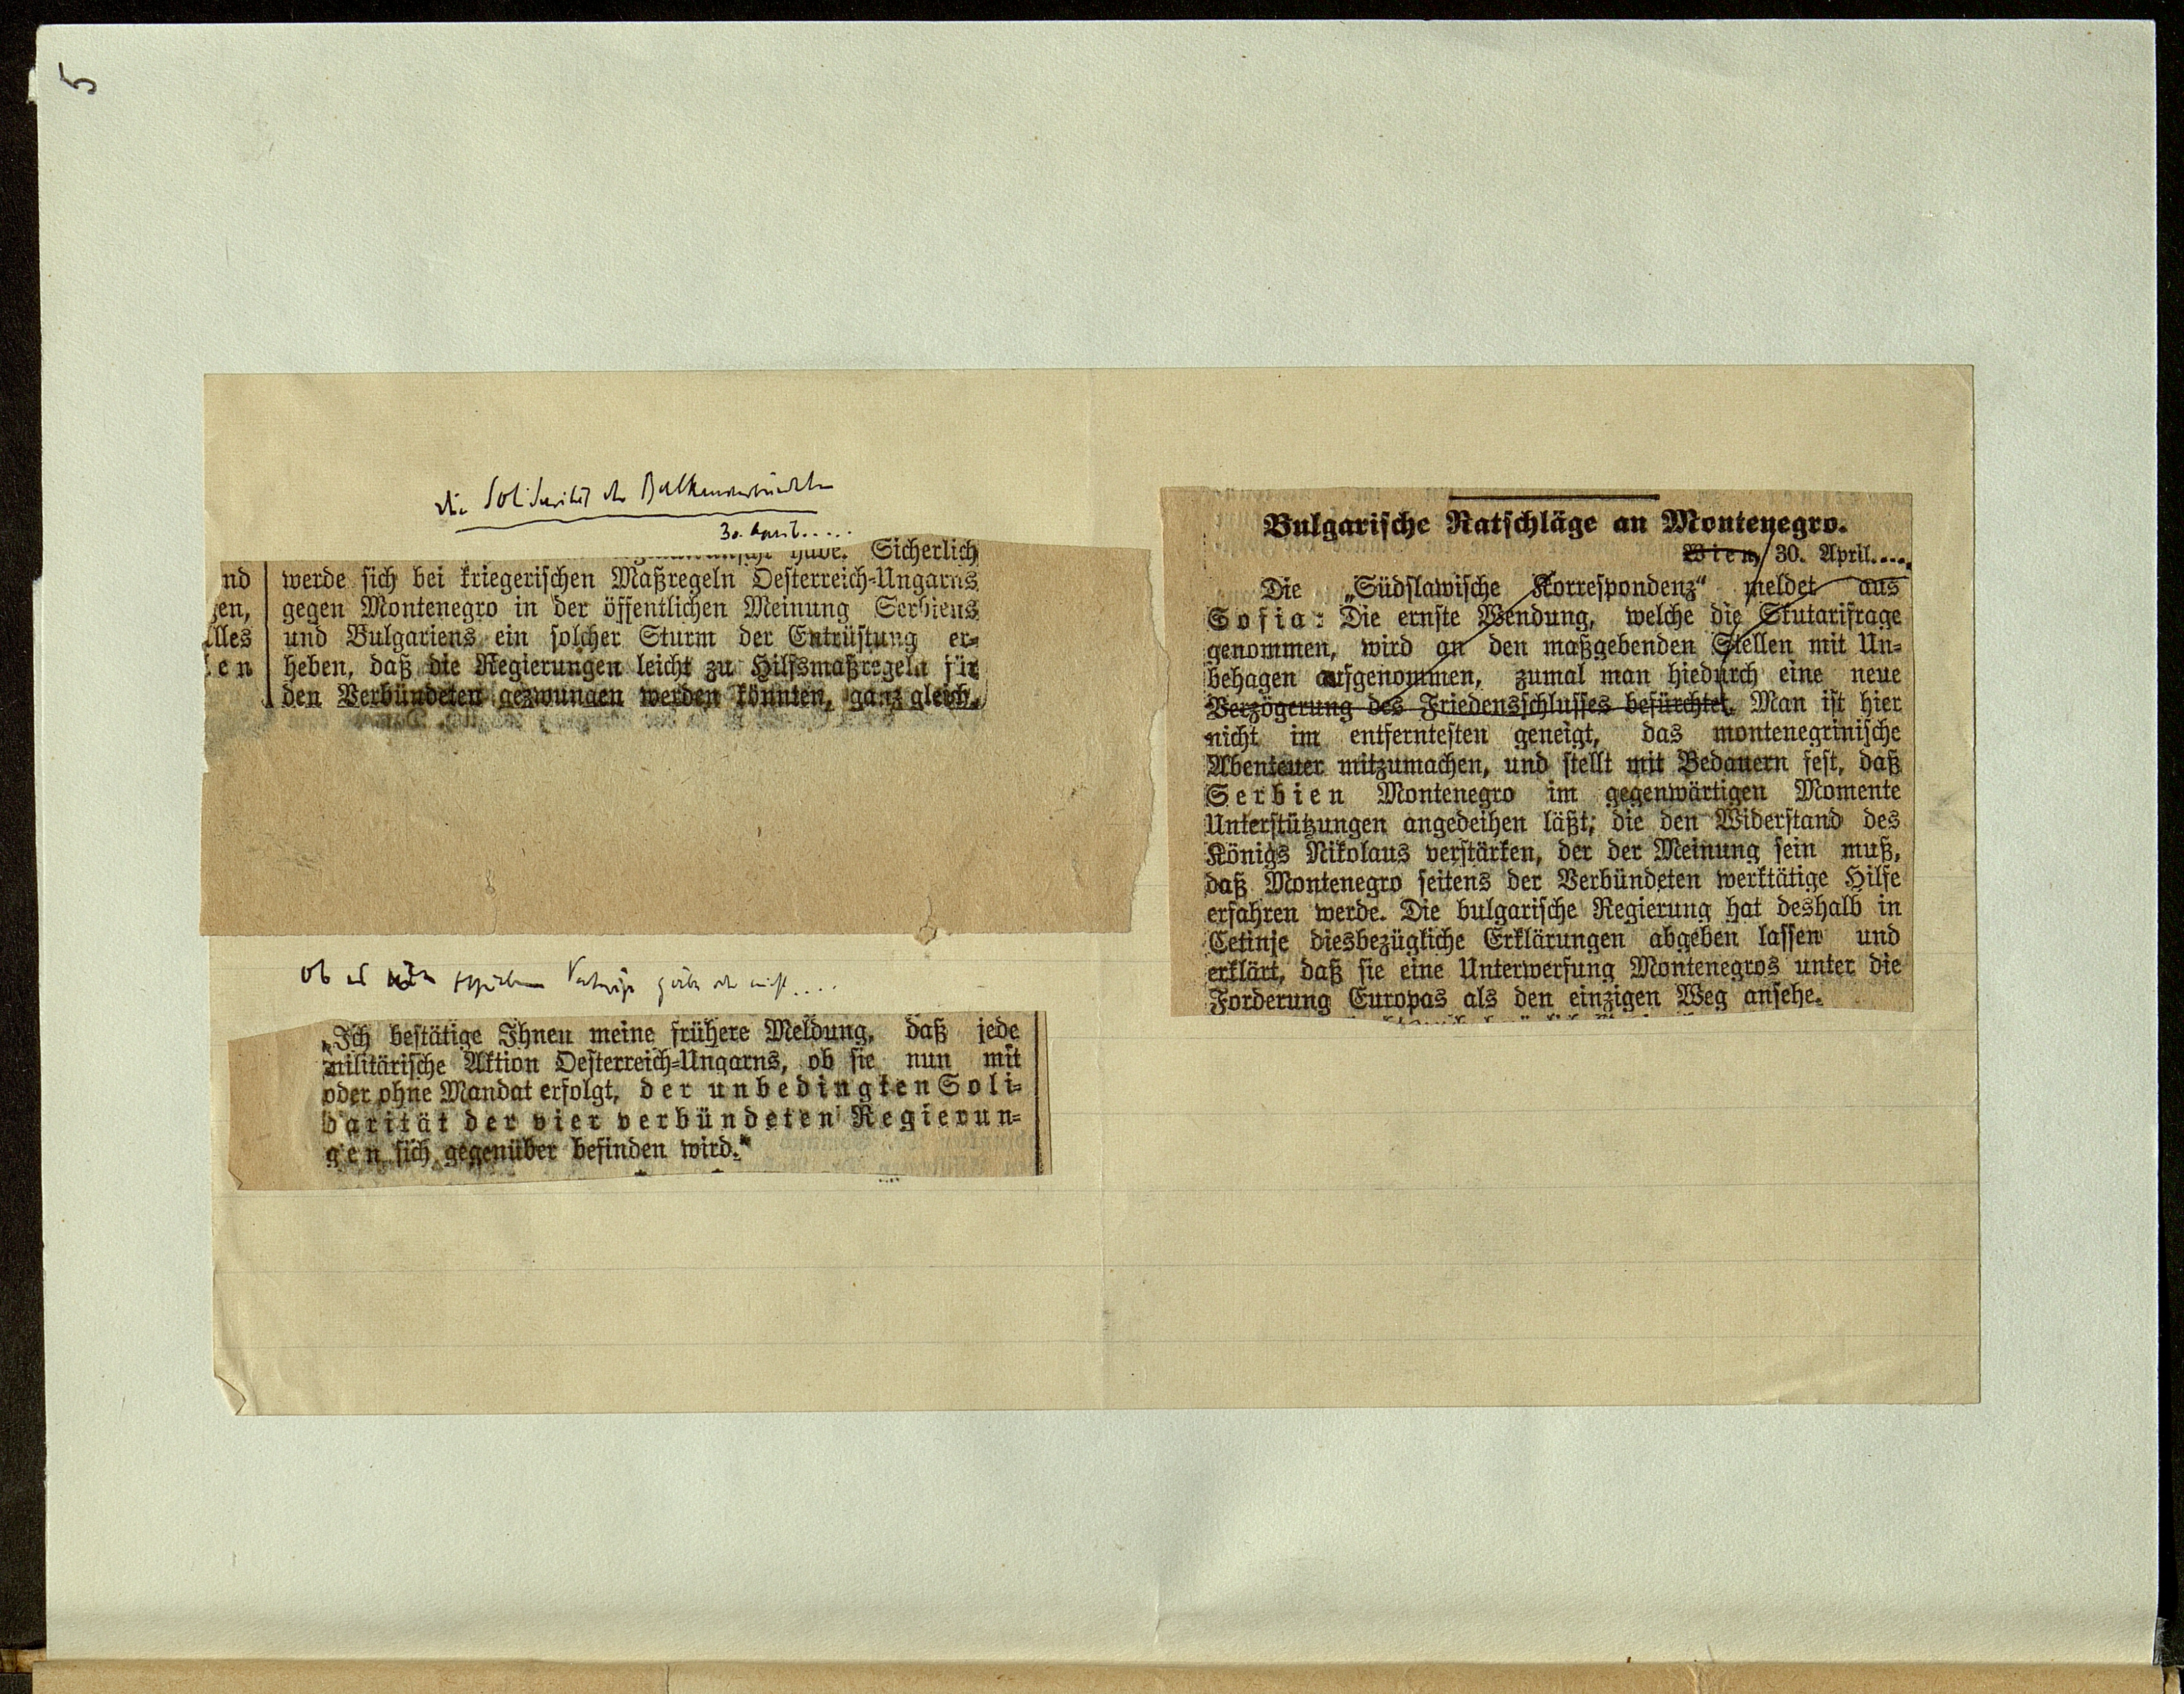 5
die Solidarität der Balkanverbündeten
30. April.....
habe. Sicherlich
nd
werde sich bei kriegerischen Maßregeln Oesterreich-Ungarns
en,
gegen Montenegro in der öffentlichen Meinung Serbiens
lles
und Bulgariens ein solcher Sturm der Entrüstung er-
en
heben, daß die Regierungen leicht zu Hilfsmaßregeln für
den Verbündeten gezwungen werden könnten, ganz gleich,
ob es Verträge gäbe oder nicht....
„Ich bestätige Ihnen meine frühere Meldung, daß jede
militärische Aktion Oesterreich-Ungarns, ob sie nun mit
oder ohne Mandat erfolgt, der unbedingten Soli-
darität der vier verbündeten Regierun-
gen sich gegenüber befinden wird."
Bulgarische Ratschläge an Montenegro.
Wien, 30. April....
Die „Südslawische Korrespondenz" meldet aus
Sofia: Die ernste Wendung, welche die Skutarifrage
genommen, wird an den maßgebenden Stellen mit Un-
behagen aufgenommen, zumal man hiedurch eine neue
Verzögerung des Friedensschlusses befürchtet. Man ist hier
nicht im entferntesten geneigt, das montenegrinische
Abenteuer mitzumachen, und stellt mit Bedauern fest, daß
Serbien Montenegro im gegenwärtigen Momente
Unterstützungen angedeihen läßt, die den Widerstand des
Königs Nikolaus verstärken, der der Meinung sein muß,
daß Montenegro seitens der Verbündeten werktätige Hilfe
erfahren werde. Die bulgarische Regierung hat deshalb in
Cetinje diesbezügliche Erklärungen abgeben lassen und
erklärt, daß sie eine Unterwerfung Montenegros unter die
Forderung Europas als den einzigen Weg ansehe.